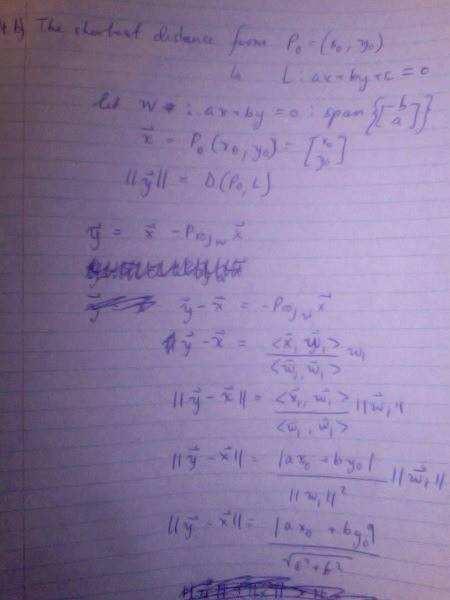 4.b) The shortest distance from P₀ = (x₀, y₀)
to L: ax + by + c = 0
let W : ax + by = 0 : span {[-b a]}
x⃗ = P₀(x₀, y₀) = [x₀ y₀]
||y⃗|| = D(P₀, L)
y⃗ = x⃗ - Proj_w x⃗
y⃗ - x⃗ = -Proj_w x⃗
y⃗ - x⃗ = <x⃗, w⃗₁> / <w⃗₁, w⃗₁> w₁
||y⃗ - x⃗|| = <x⃗, w⃗₁> / <w⃗₁, w⃗₁> ||w⃗₁||
||y⃗ - x⃗|| = |ax₀ + by₀| / ||w₁||² ||w⃗₁||
||y⃗ - x⃗|| = |ax₀ + by₀| / √a² + b²